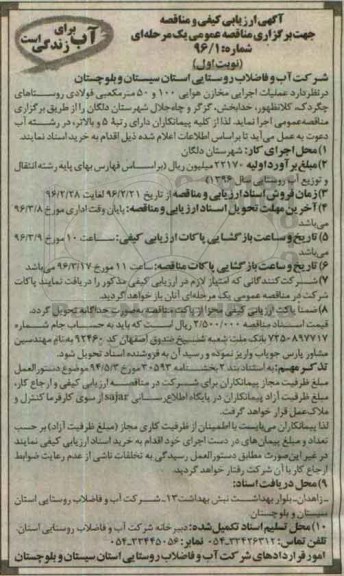 برای
آب
زندگی است
آگهی ارزیابی کیفی و مناقصه
جهت برگزاری مناقصه عمومی یک مرحله‌ای
شماره: ۹۶/۱
(نوبت اول)
شرکت آب و فاضلاب روستایی استان سیستان و بلوچستان
در نظر دارد عملیات اجرایی مخازن هوایی ۱۰۰ و ۵۰ مترمکعبی فولادی روستاهای
چگردک، کلانظهور، خدابخش، گزگز و چاه‌جلال شهرستان دلگان را از طریق برگزاری
مناقصه عمومی اجرا نماید. لذا از کلیه پیمانکاران دارای رتبه ۵ و بالاتر، در رشته آب
دعوت به عمل می‌آید تا براساس اطلاعات اعلام شده ذیل اقدام به خرید اسناد نمایند.
۱) محل اجرای کار: شهرستان دلگان
۲) مبلغ برآورد اولیه ۲۲۱۷۰ میلیون ریال (براساس فهارس بهای پایه رشته انتقال
و توزیع آب روستایی سال ۱۳۹۶)
۳) زمان فروش اسناد ارزیابی و مناقصه از تاریخ ۹۶/۲/۲۱ لغایت ۹۶/۲/۲۸
۴) آخرین مهلت تحویل اسناد ارزیابی و مناقصه: پایان وقت اداری مورخ ۹۶/۳/۸
می‌باشد
۵) تاریخ و ساعت بازگشایی پاکات ارزیابی کیفی: ساعت ۱۰ مورخ ۹۶/۳/۹
می‌باشد
۶) تاریخ و ساعت بازگشایی پاکات مناقصه: ساعت ۱۱ مورخ ۹۶/۳/۱۷ می‌باشد
۷) شرکت‌کنندگانی که امتیاز لازم در ارزیابی کیفی مذکور را دریافت نمایند پاکات
شرکت در مناقصه عمومی یک مرحله‌ای آنان باز خواهد گردید.
۸) ضمناً پاکت ارزیابی کیفی مجزا از پاکت مناقصه به‌صورت جداگانه تحویل گردد.
قیمت اسناد مناقصه ۲/۵۰۰/۰۰۰ ریال است که باید به حساب جام شماره
۷۳۵۰۸۹۷۷۱۷ بانک ملت شعبه شیخ صدوق اصفهان کد ۹۲۴۶۰ به نام مهندسین
مشاور پارس جویاب واریز نموده و رسید آن به فروشنده اسناد تحویل شود.
تذکر مهم: به استناد بند ۲ بخشنامه ۳۰۵۹۳ مورخ ۹۴/۵/۳ موضوع دستورالعمل
مبلغ ظرفیت مجاز پیمانکاران برای شرکت در مناقصه ارزیابی کیفی و ارجاع کار،
مبلغ ظرفیت آزاد پیمانکاران در پایگاه اطلاع‌رسانی sajar از سوی کارفرما کنترل و
ملاک عمل قرار خواهد گرفت.
لذا پیمانکاران می‌بایست با اطمینان از ظرفیت کاری مجاز (مبلغ ظرفیت آزاد) بر حسب
تعداد و مبلغ پیمان‌های در دست اجرای خود اقدام به خرید اسناد ارزیابی کیفی نمایند
در غیر این‌صورت مطابق دستورالعمل رسیدگی به تخلفات ناشی از عدم رعایت ضوابط
ارجاع کار با آن شرکت رفتار خواهد گردید.
۹) محل دریافت اسناد:
-زاهدان- بلوار بهداشت نبش بهداشت ۱۳- شرکت آب و فاضلاب روستایی استان
سیستان و بلوچستان
۱۰) محل تسلیم اسناد تکمیل شده: دبیرخانه شرکت آب و فاضلاب روستایی استان
تلفن تماس: ۳۳۴۲۶۳۱۲-۰۵۴ نمابر: ۳۳۴۴۵۰۵۶-۰۵۴
امور قراردادهای شرکت آب و فاضلاب روستایی استان سیستان و بلوچستان